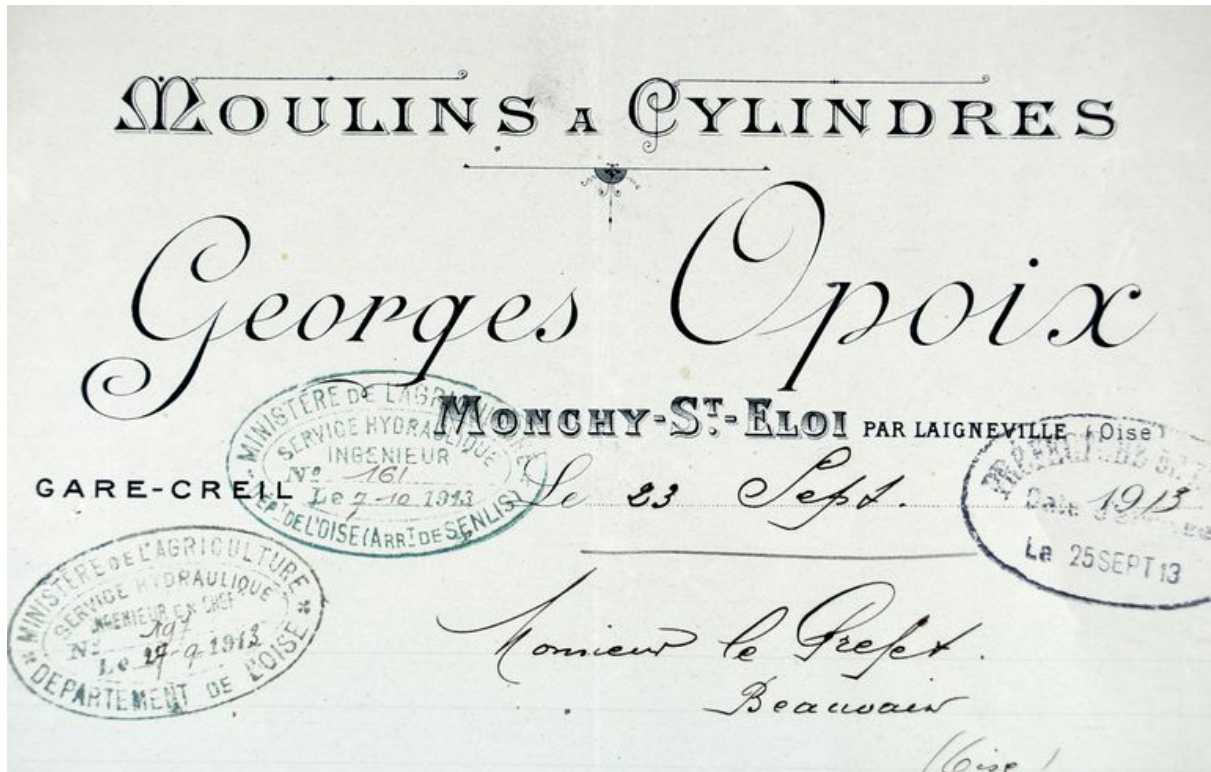 MOULINS A CYLINDRES
Georges Opoix
MONCHY-ST-ELOI PAR LAIGNEVILLE (Oise)
GARE-CREIL
Le 23 Sept. 1913
MINISTÈRE DE L'AGRICULTURE
SERVICE HYDRAULIQUE
INGENIEUR
No 161
Le 7-10 1913
DÉPT DE L'OISE (ARRT DE SENLIS)
PRÉFECTURE DE
Date
Le 25 SEPT 13
MINISTÈRE DE L'AGRICULTURE
SERVICE HYDRAULIQUE
INGENIEUR EN CHEF
No 197
Le 27-9 1913
DÉPARTEMENT DE L'OISE
Monsieur le Prefet.
Beauvais
(Oise)